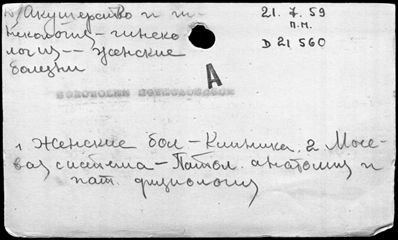 Акушерство и ги-
некология - гинеко
логия -- Женские
болезни
21. 7. 59
п.м.
D 21 560
A
1 Женские бол - Клиника. 2
система - Патол. анатомия и
пат. физиология